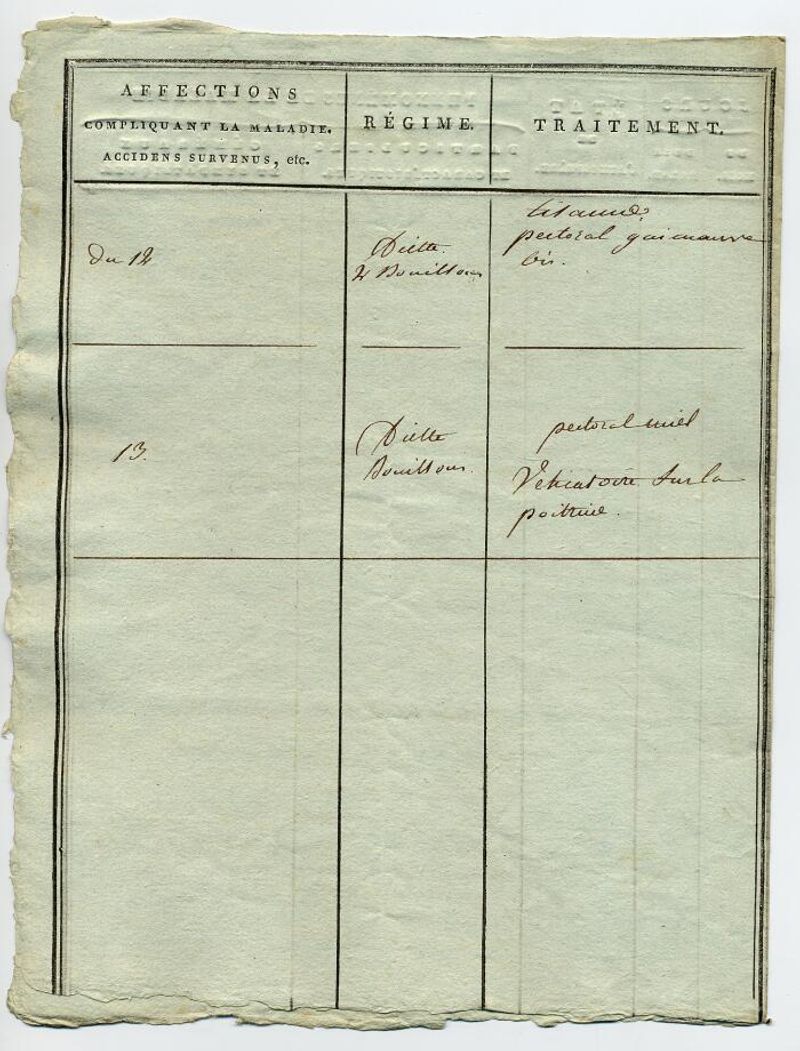 AFFECTIONS
COMPLIQUANT LA MALADIE.
ACCIDENS SURVENUS, etc.
RÉGIME.
TRAITEMENT.
du 12
Diette.
2 Bouillons
tisanne
pectoral guimauve
bis.
13.
Diette
Bouillons.
pectoral miel
Vesicatoire sur la
poitrine.